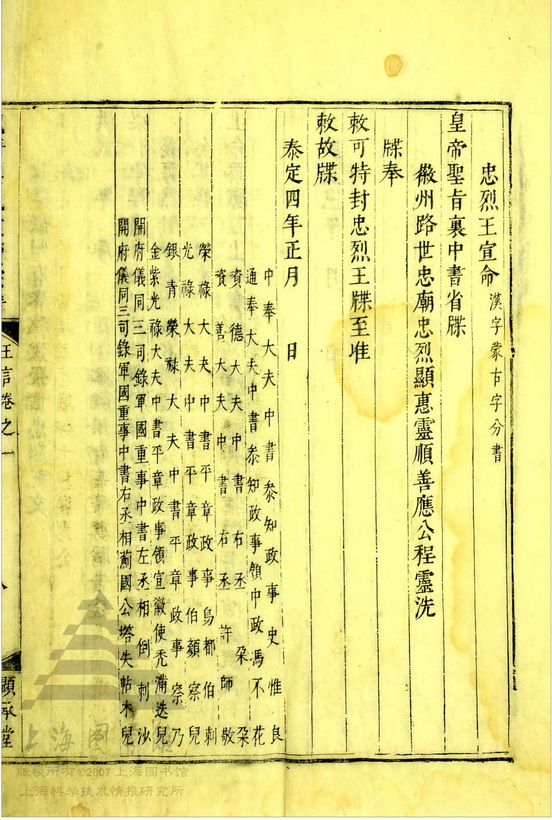 忠烈王宣命漢字蒙古字分書
皇帝聖旨裏中書省牒
徽州路世忠廟忠烈顯惠靈順善應公程靈洗
牒奉
敕可特封忠烈王牒至准
敕故牒
泰定四年正月 日
中奉大夫中書參知政事史惟良
通奉大夫中書參知政事領中政馮不花
資德大夫中書右丞朶朶
資善大夫中書右丞許師敬
榮祿大夫中書平章政事烏都伯剌
光祿大夫中書平章政事伯顏察兒
銀青榮祿大夫中書平章政事察乃
金紫光祿大夫中書平章政事領宣徽使禿滿迭兒
開府儀同三司錄軍國重事中書左丞相倒剌沙
開府儀同三司錄軍國重事中書右丞相薊國公塔失帖木兒
王言卷之一
八
顯承堂
上海圖
版权所有©2007上海图书馆
上海科学技术情报研究所